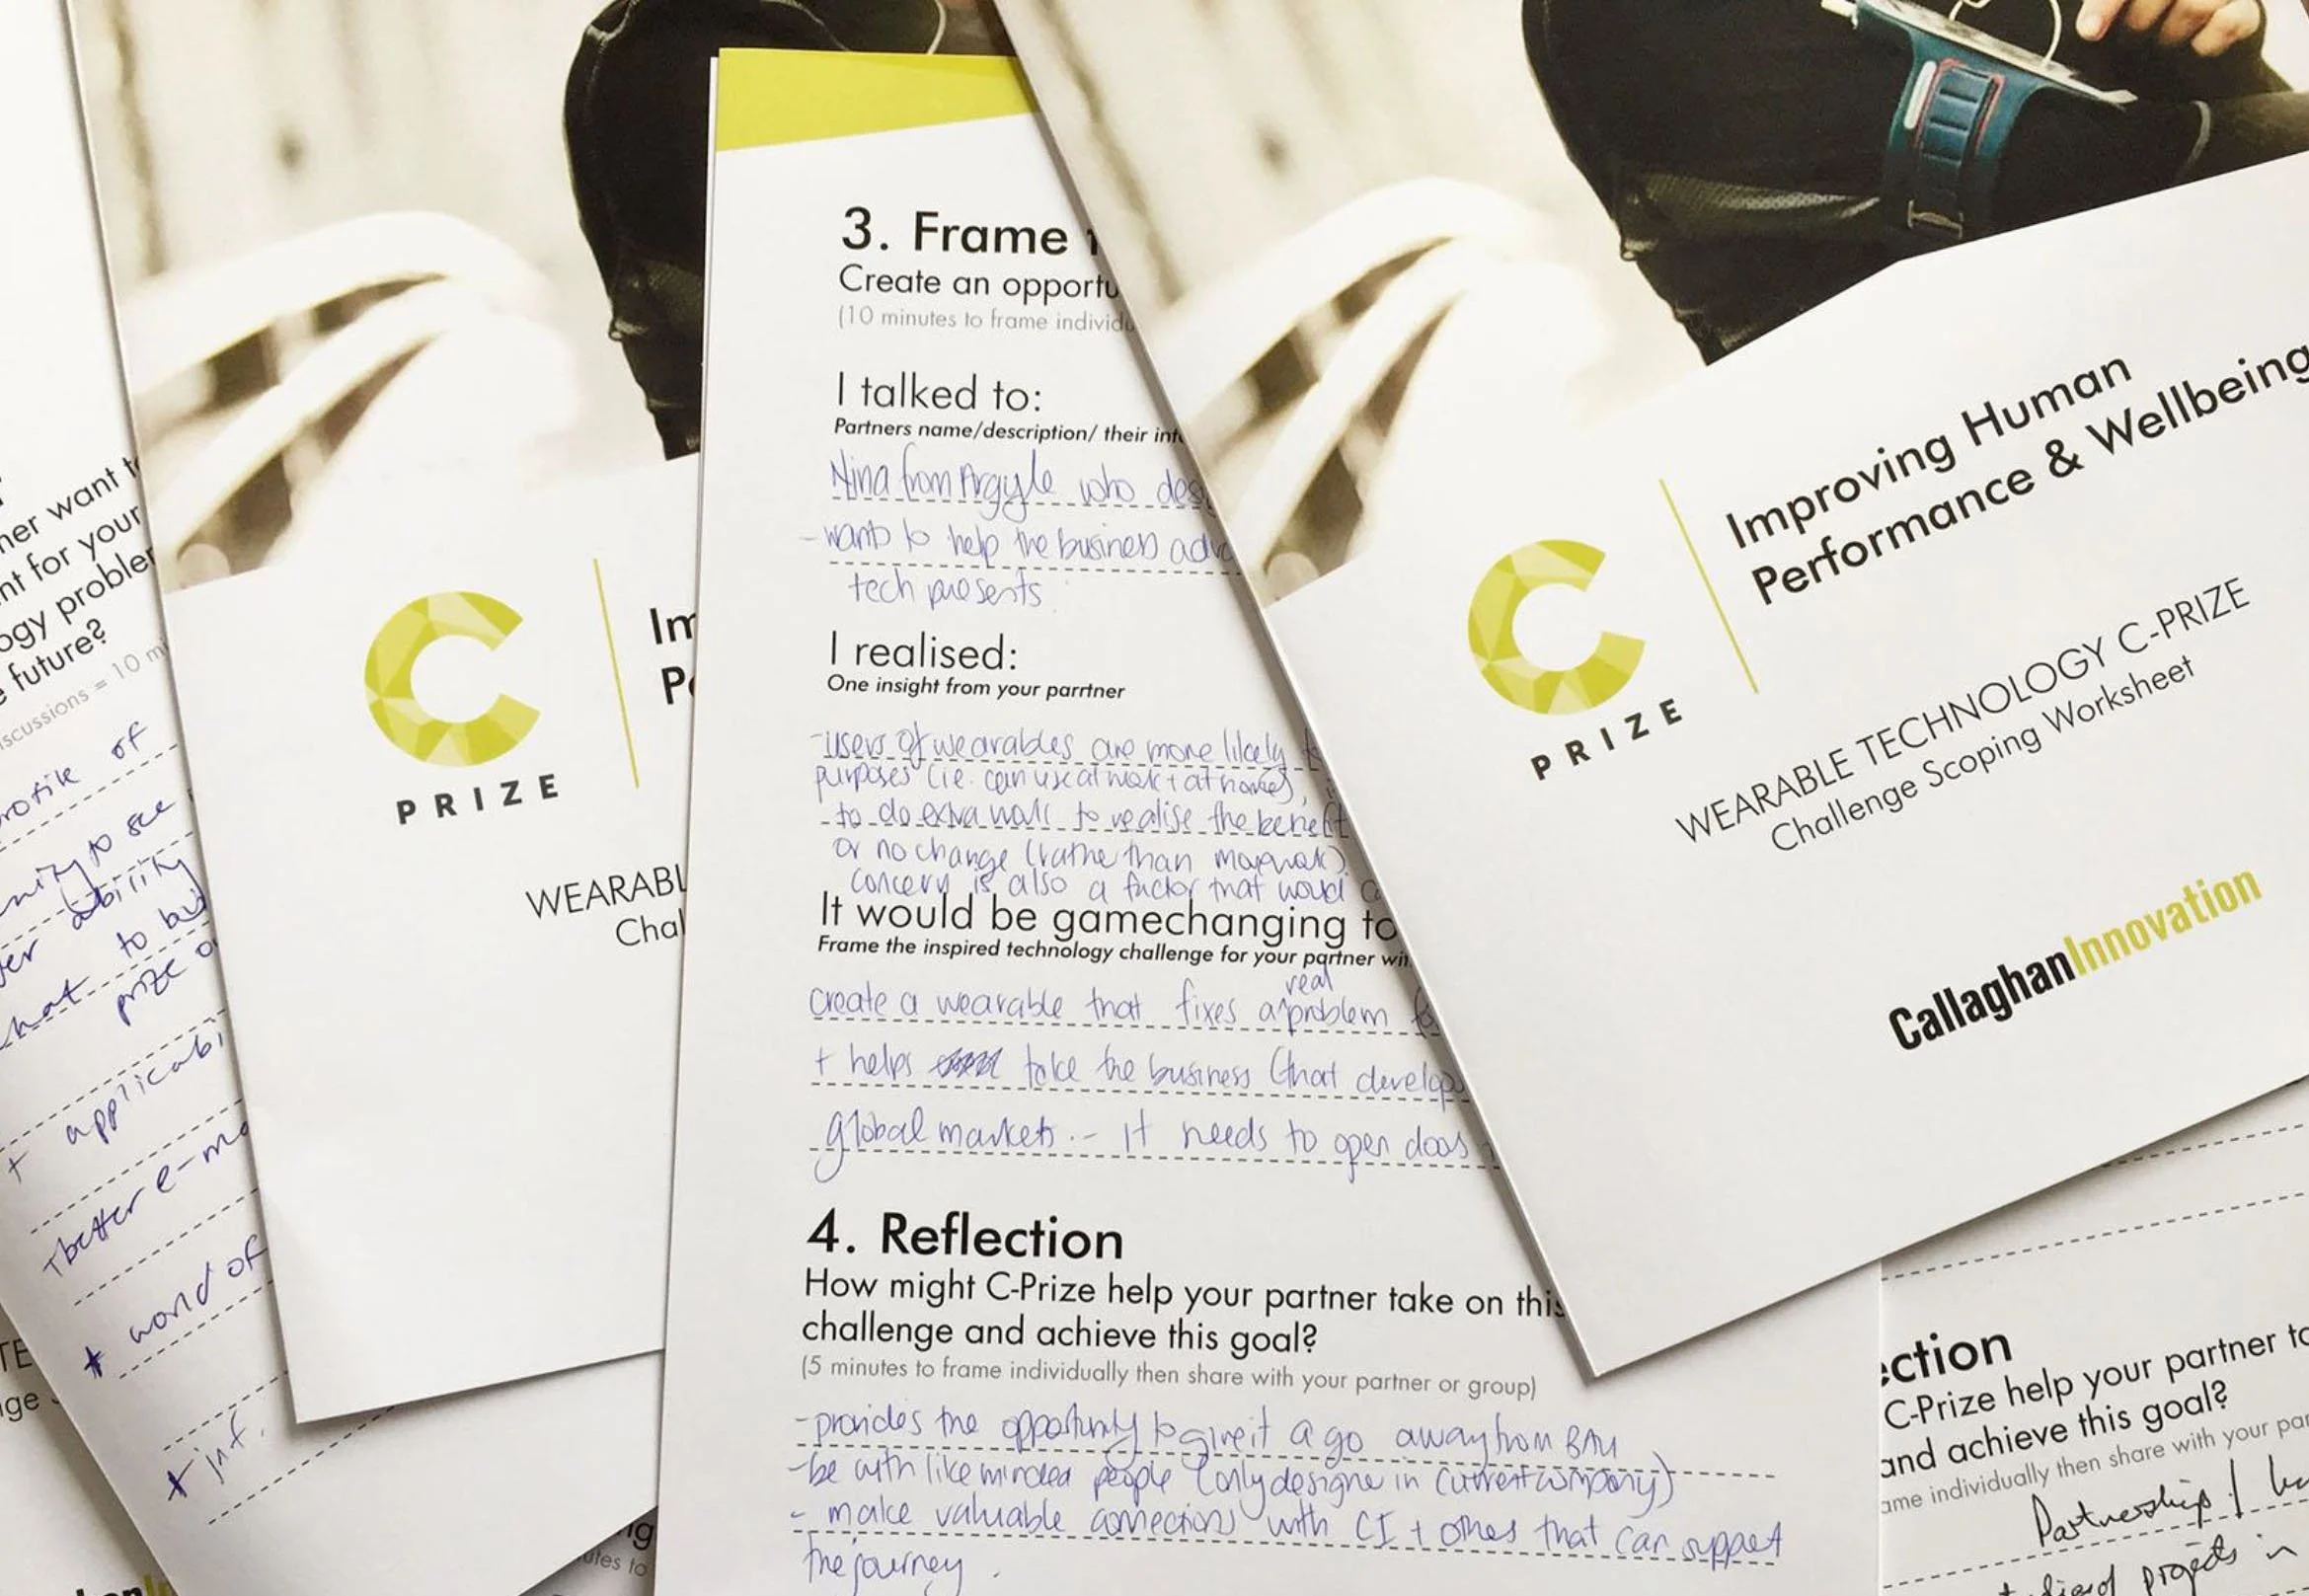 3. Frame
Create an opportu
(10 minutes to frame individu
I talked to:
Partners name/description/ their int
Nina from Argyle who des
- wants to help the business adv
tech presents.
I realised:
One insight from your parrtner
- users of wearables are more likely
purposes (ie. can use at work + at home),
to do extra work to realise the benefit
or no change (rather than
concern is also a factor that would
It would be gamechanging to
Frame the inspired technology challenge for your partner wit
real
create a wearable that fixes a ^ problem
+ helps take the business (that develops
global markets. - It needs to open doors
4. Reflection
How might C-Prize help your partner take on this
challenge and achieve this goal?
(5 minutes to frame individually then share with your partner or group)
- provides the opportunity to give it a go away from BAU
- be with like minded people (only designer in current company)
- make valuable connections with CI + others that can support
the journey.
Improving Human
Performance & Wellbeing
C
PRIZE
WEARABLE TECHNOLOGY C-PRIZE
Challenge Scoping Worksheet
CallaghanInnovation
C
PRIZE
Im
Pe
WEARABL
Chal
ner want to
nt for your
ogy problem
e future?
scussions = 10 mi
rofile of
to see
ability
what to build
prize o
+ applicabi
better e-mo
+ world of
+ inf.
TE
ge
ng
utes to
ction
C-Prize help your partner to
and achieve this goal?
ame individually then share with your par
Partnerships /
projects in